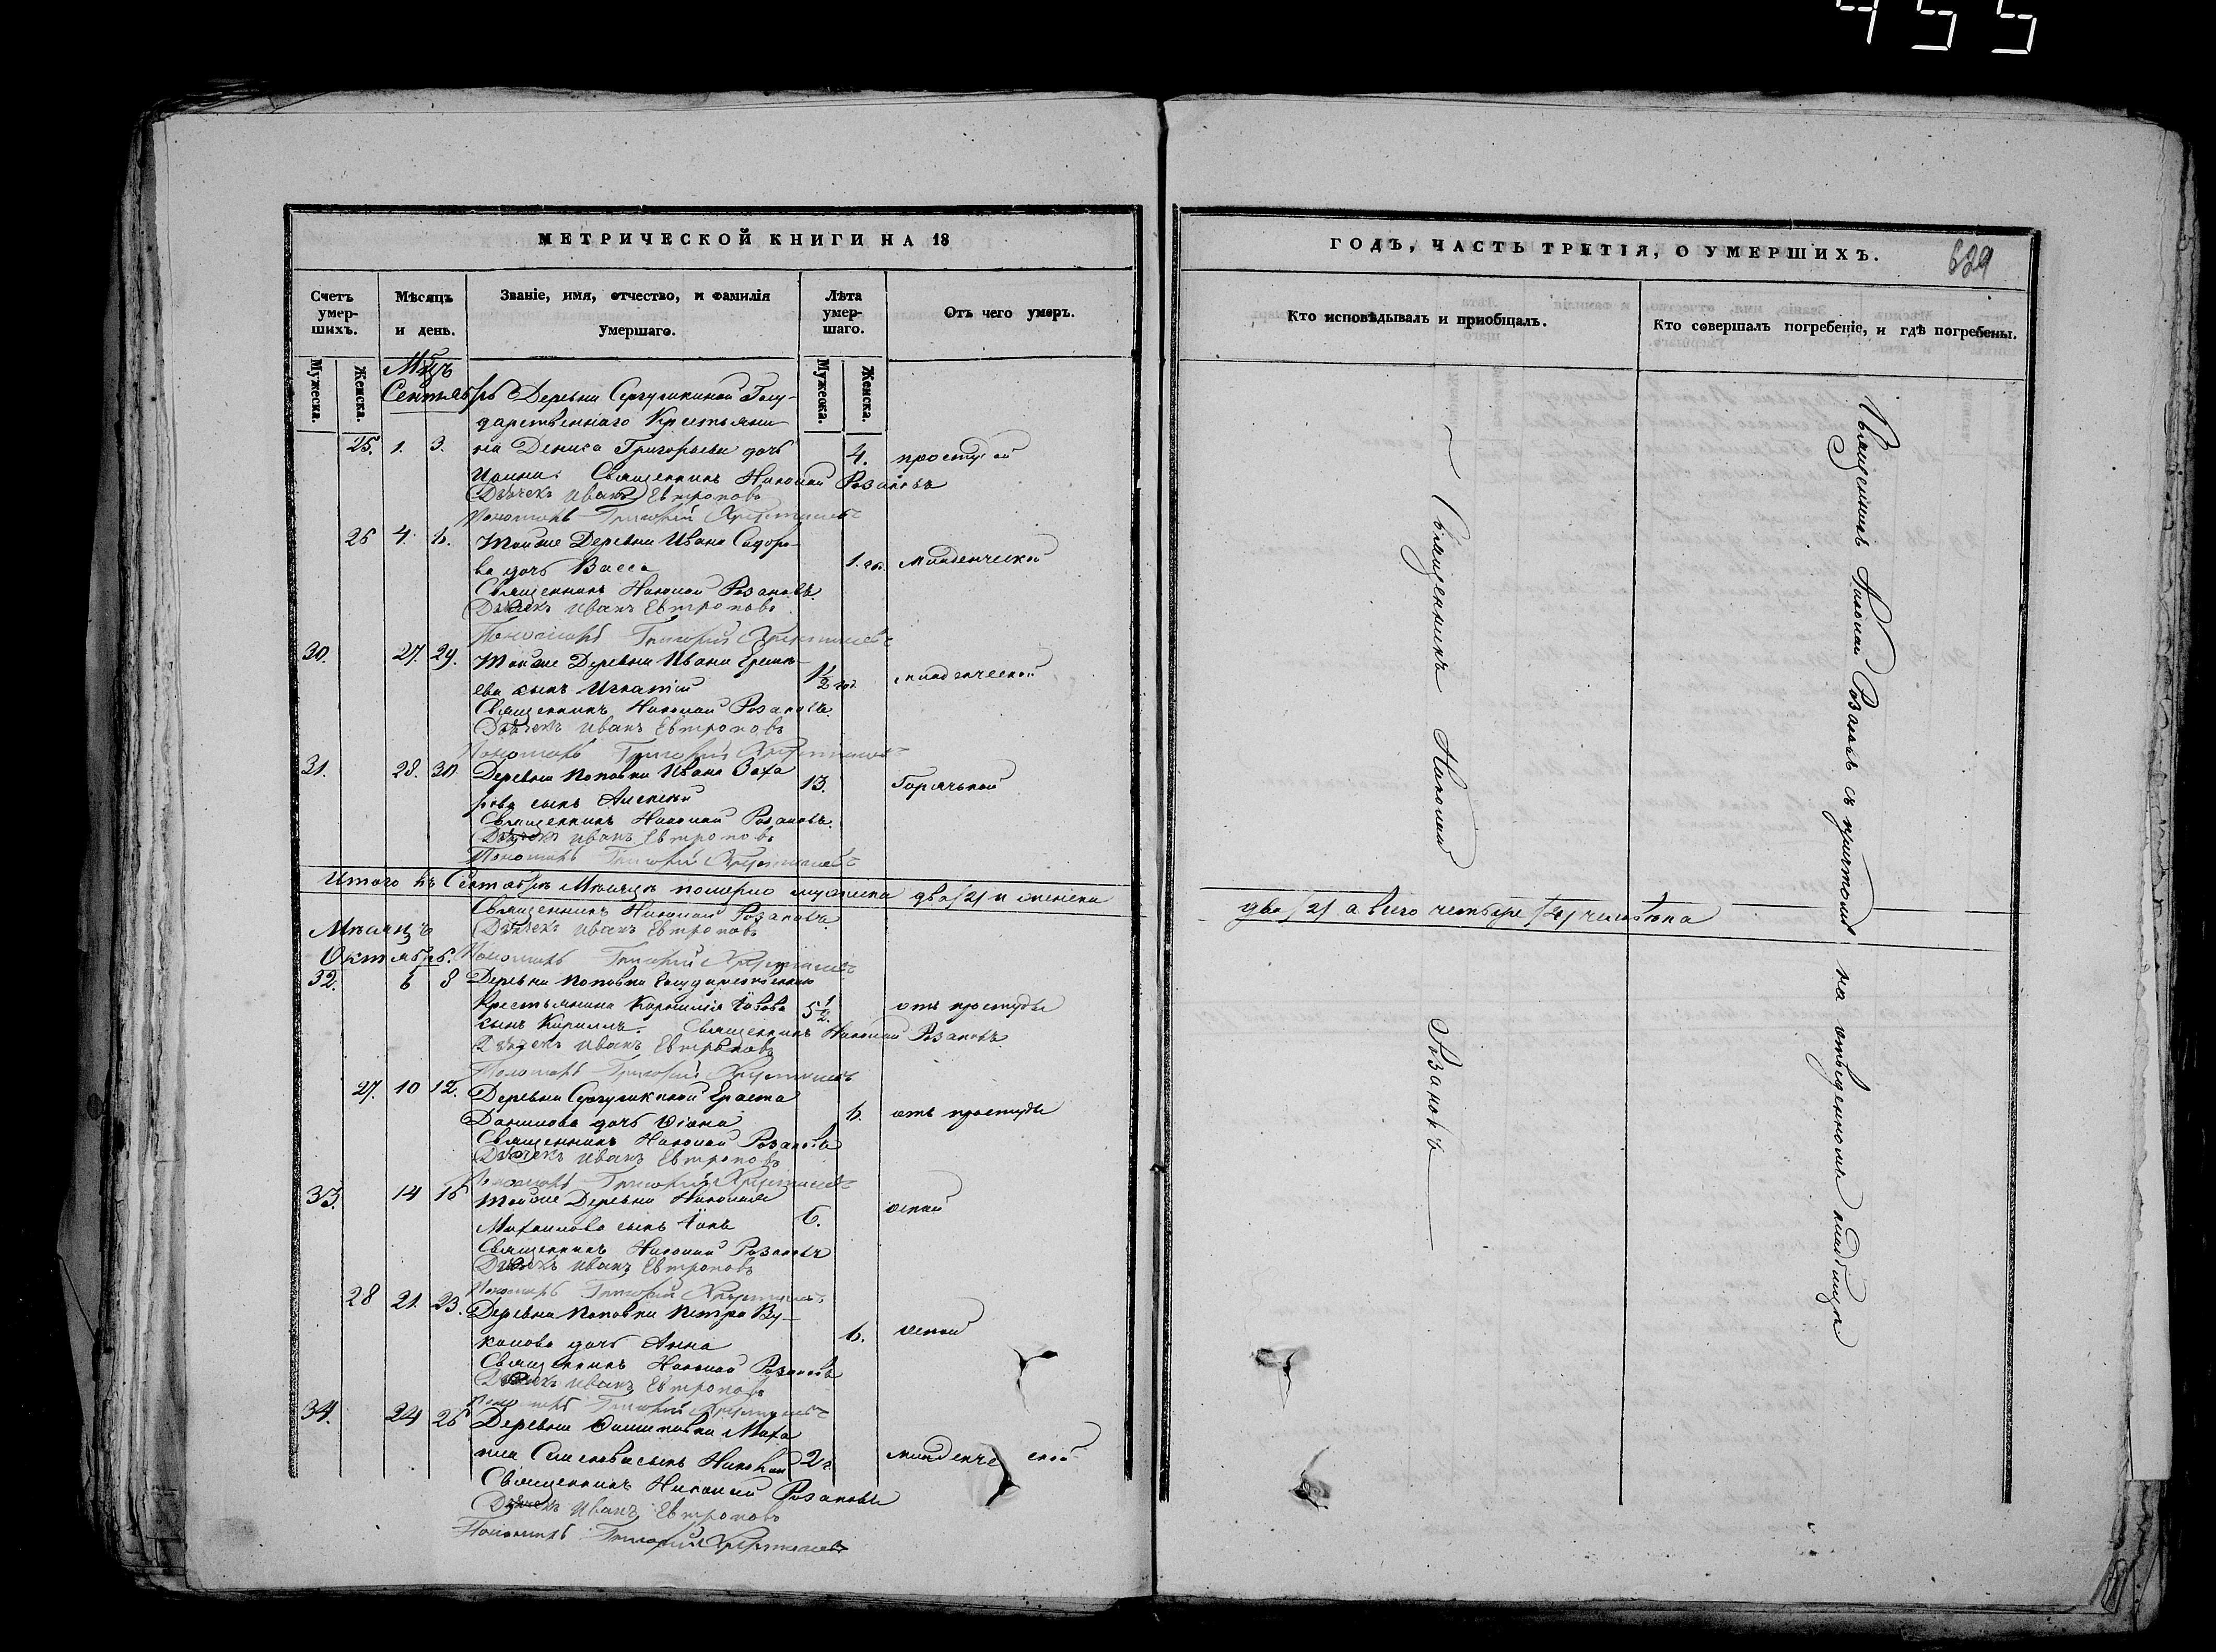 455
МЕТРИЧЕСКОЙ КНИГИ НА 18
Счетъ умер-шихъ.
Мѣсяцъ и день.
Званіе, имя, отчество, и фамилія умершаго.
Лѣта умер-шаго.
Отъ чего умеръ.
Мужеска.
Женска.
Мужеска.
Женска.
Мцъ
Сентябрь Деревни Сергушкиной Госу-
дарственнаго Крестьяни-
25. 1. 3. на Дениса Григорьева дочь 4. простудой
Священникъ Николай Розановъ
Дьячекъ Иванъ Евтроповъ
Пономарь Григорій
26 4. 6. Тойже Деревни Ивана Сидоро-
ва дочь Васса 1. год. Младенческой
Священникъ Николай Розановъ.
Дьячекъ Иванъ Евтроповъ
Пономарь Григорій
30. 27. 29. Тойже Деревни Ивана
ева сынъ Игнатій 1½ год. младенческой
Священникъ Николай Розановъ.
Дьячекъ Иванъ Евтроповъ
Пономарь Григорій
31. 28. 30 Деревни Поповки Ивана Заха
рова сынъ Алексей 13. Горячькой
Священникъ Николай Розановъ.
Дьячекъ Иванъ Евтроповъ
Пономарь Григорій
Итого въ Сентябрѣ Мѣсяцѣ померло мужеска два /2/ и женска
Священникъ Николай Розановъ.
Мѣсяцъ Дьячекъ Иванъ Евтроповъ
Октябрь. Пономарь Григорій
32. 6 8 Деревни Поповки Государственнаго
Крестьянина Корнилія 5½. отъ простуды
сынъ Кириллъ. Священникъ Николай Розановъ.
Дьячекъ Иванъ Евтроповъ
Пономарь Григорій
27. 10 12. Деревни Сергушкиной Ераста
Данилова дочь 6. отъ простуды
Священникъ Николай Розановъ
Дьячекъ Иванъ Евтроповъ
Пономарь Григорій
33. 14 16 Тойже Деревни Николая
Михайлова сынъ 6. оспой
Священникъ Николай Розановъ
Дьячекъ Иванъ Евтроповъ
Пономарь Григорій
28 21. 23. Деревни Поповки Петра Ву-
колова дочь Анна 6. оспой
Священникъ Николай Розановъ
Дьячекъ Иванъ Евтроповъ
Пономарь Григорій
34. 24 26 Деревни Миха
ила Семенова сынъ Николай 2 г. младенческой
Священникъ Николай Розановъ
Дьячекъ Иванъ Евтроповъ
Пономарь Григорій
ГОДЪ, ЧАСТЬ ТРЕТІЯ, О УМЕРШИХЪ.
629
Кто исповѣдывалъ и пріобщалъ.
Кто совершалъ погребеніе, и гдѣ погребены.
Священникъ Николай Розановъ
Священникъ Николай Розановъ съ причтомъ на отведенномъ кладбищѣ
два /2/ а всего четыре /4/ человѣка